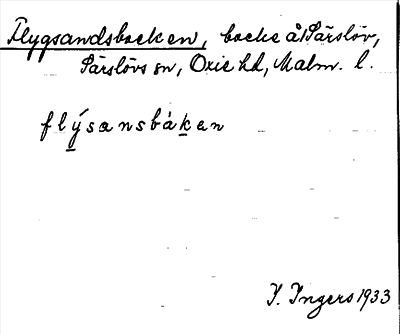 Flygsandsbacken, backe å Särslöv,
Särslövs sn, Oxie hd, Malm. l.
flýsansbàken
I. Ingers 1933